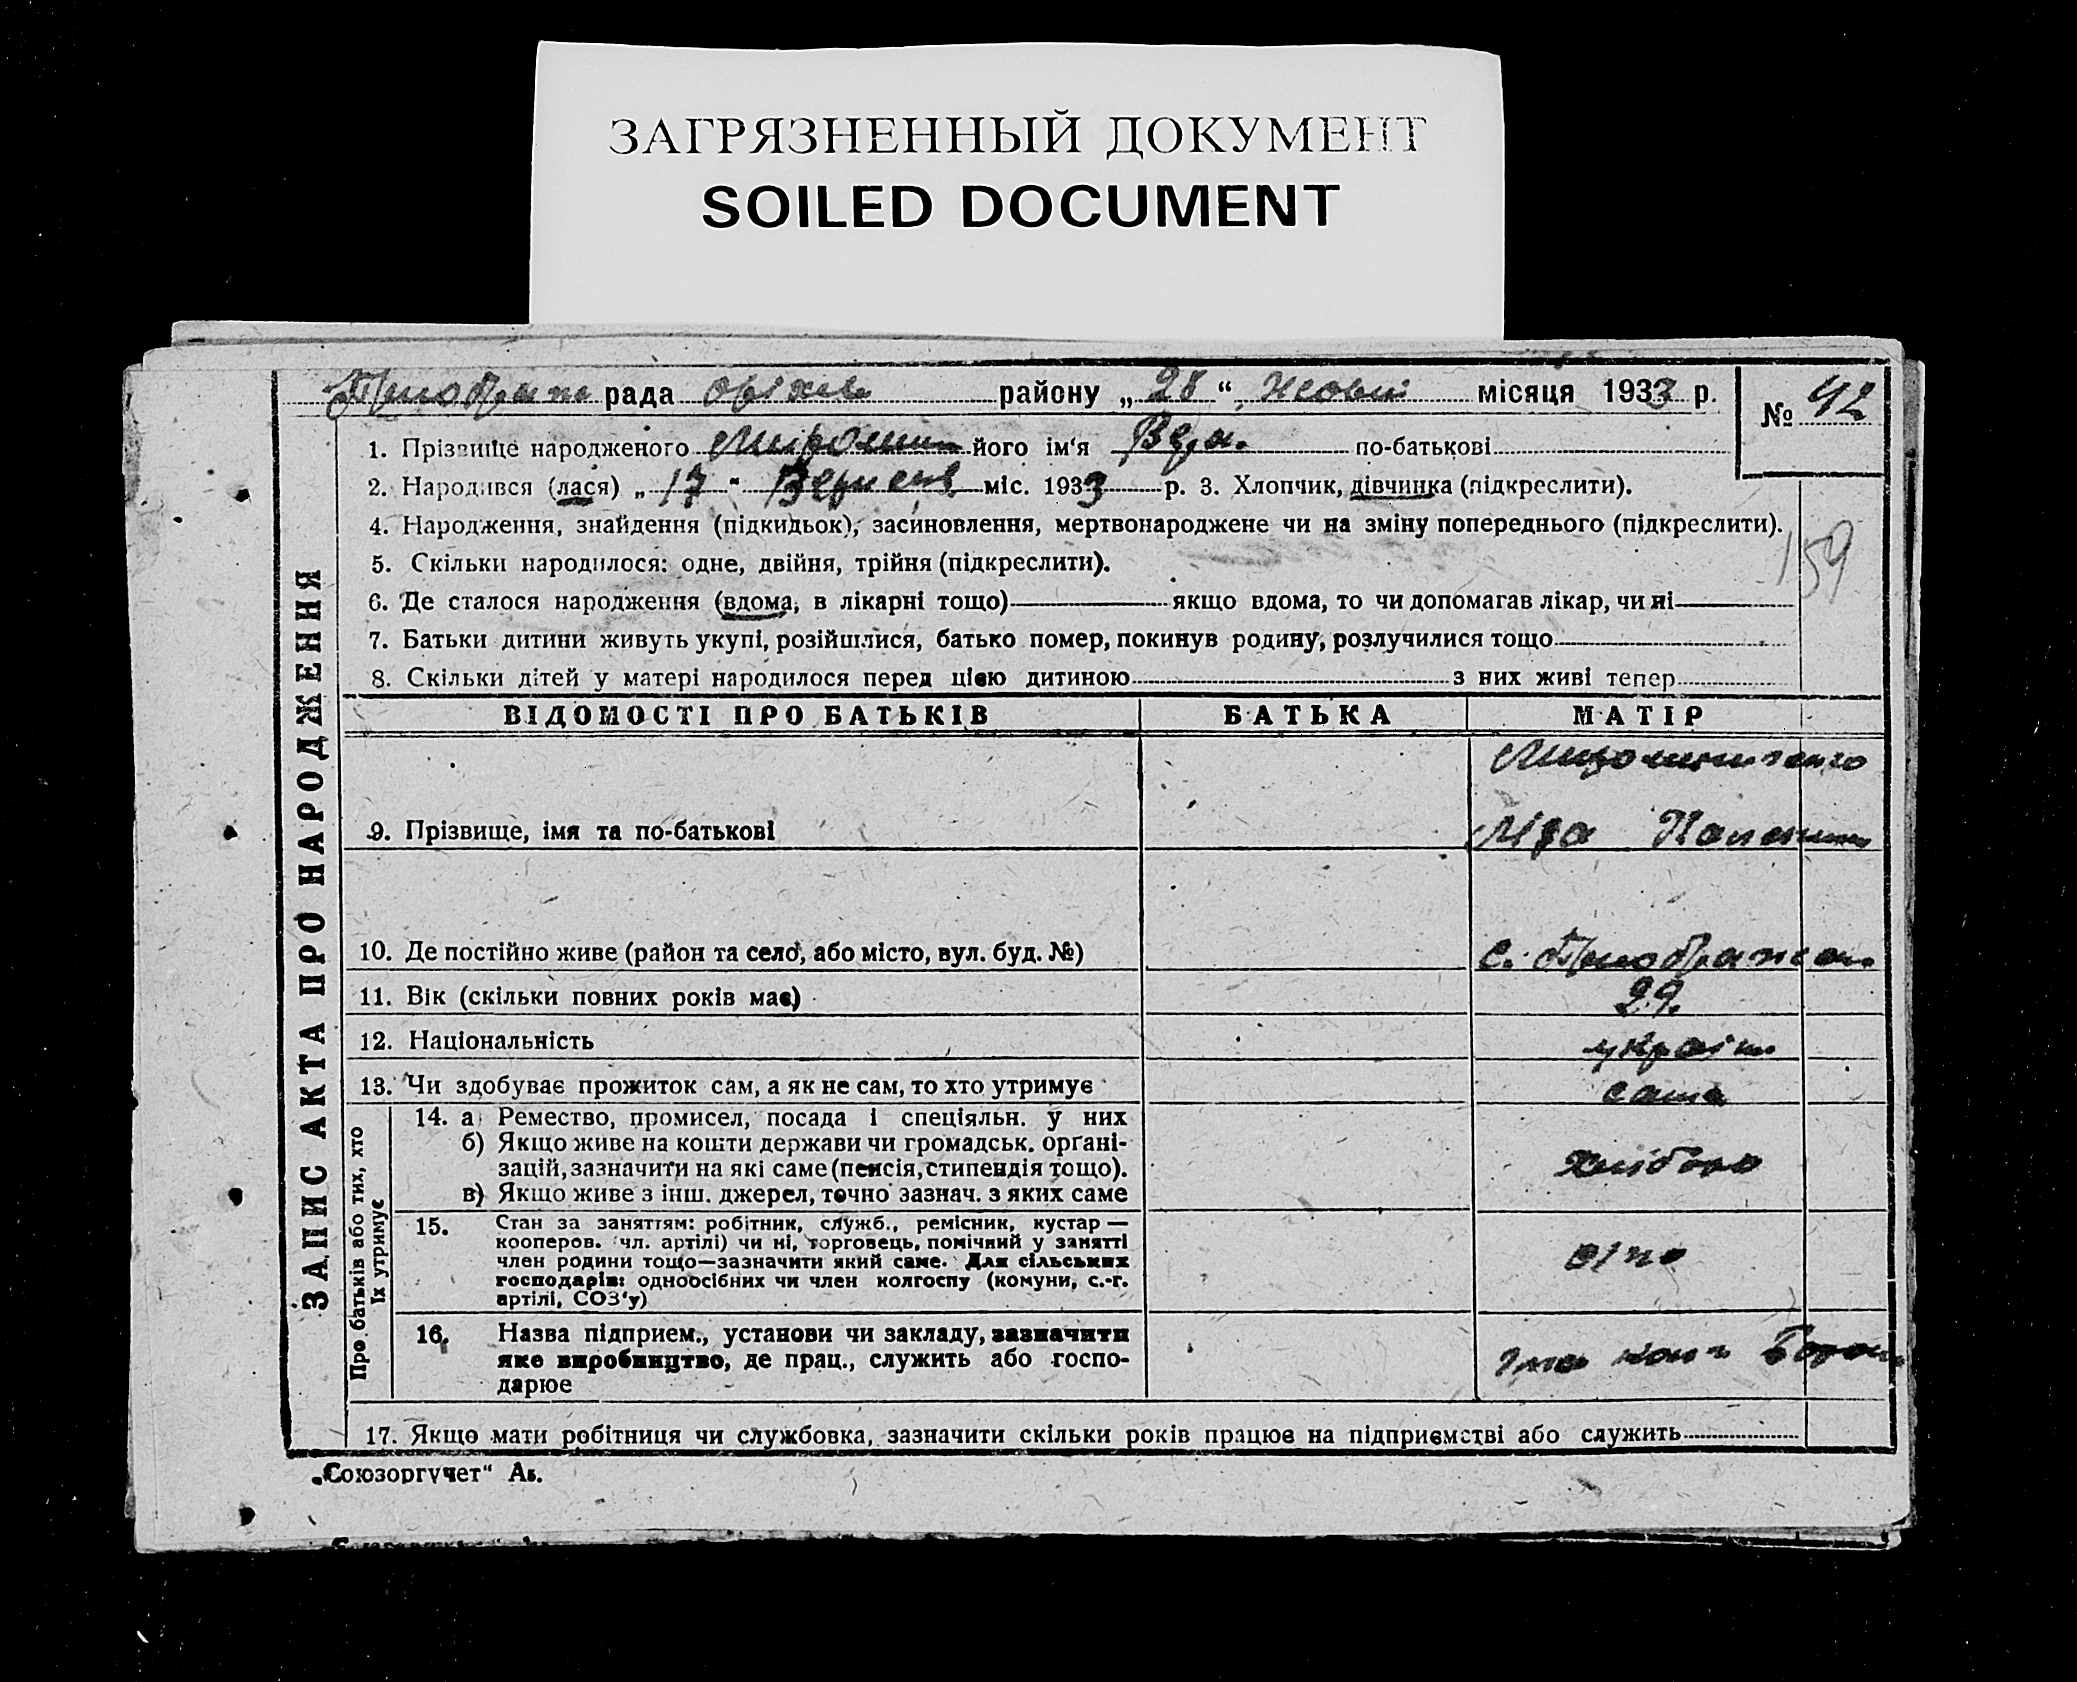 ЗАГРЯЗНЕННЫЙ ДОКУМЕНТ
SOILED DOCUMENT
рада оріхів району „28“ Жовт місяця 1933 р.
№ 42
1. Прізвище народженого його ім‘я по-батькові
2. Народився (лася) „17“ Вересня міс. 1933 р. 3. Хлопчик, дівчинка (підкреслити).
4. Народження, знайдення (підкидьок), засиновлення, мертвонароджене чи на зміну попереднього (підкреслити).
159
5. Скільки народилося: одне, двійня, трійня (підкреслити).
6. Де сталося народження (вдома, в лікарні тощо) якщо вдома, то чи допомагав лікар, чи ні
7. Батьки дитини живуть укупі, розійшлися, батько помер, покинув родину, розлучилися тощо
8. Скільки дітей у матері народилося перед цією дитиною з них живі тепер
ЗАПИС АКТА ПРО НАРОДЖЕННЯ
ВІДОМОСТІ ПРО БАТЬКІВ БАТЬКА МАТІР
9. Прізвище, імя та по-батькові
10. Де постійно живе (район та село, або місто, вул. буд. №) с.
11. Вік (скільки повних років має) 29.
12. Національність україн
13. Чи здобуває прожиток сам, а як не сам, то хто утримує сама
Про батьків або тих, хто їх утримує
14. а Ремество, промисел, посада і спеціяльн. у них
б) Якщо живе на кошти держави чи громадськ. органі-
зацій, зазначити на які саме (пенсія, стипендія тощо).
в) Якщо живе з інш. джерел, точно зазнач. з яких саме
15. Стан за заняттям: робітник, служб., ремісник, кустар —
кооперов. чл. артілі) чи ні, торговець, помічний у занятті
член родини тощо—зазначити який саме. Для сільських
господарів: одноосібних чи член колгоспу (комуни, с.-г.
артілі, СОЗ‘у)
16. Назва підприєм., установи чи закладу, зазначити
яке виробництво, де прац., служить або госпо-
дарює
17. Якщо мати робітниця чи службовка, зазначити скільки років працює на підприємстві або служить
„Союзоргучет“